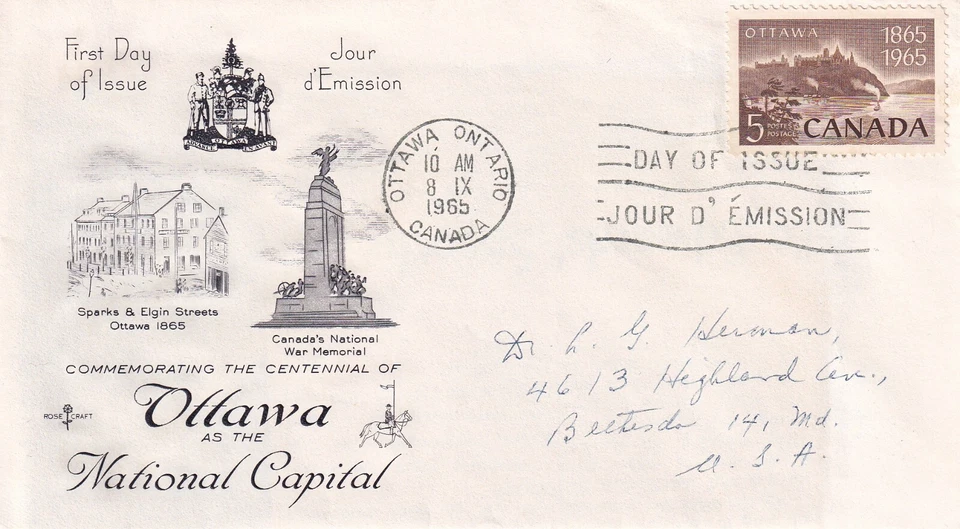 First Day
of Issue
Jour
d'Emission
ADVANCE OTTAWA EN AVANT
Sparks & Elgin Streets
Ottawa 1865
Canada's National
War Memorial
COMMEMORATING THE CENTENNIAL OF
Ottawa
AS THE
National Capital
ROSE CRAFT
OTTAWA ONTARIO
10 AM
8 IX
1965
CANADA
OTTAWA
1865
1965
5
POSTES
POSTAGE
CANADA
DAY OF ISSUE
JOUR D' ÉMISSION
Dr. L. G. Herman,
4613 Highland Ave.,
Bethesda 14, Md.
U. S. A.